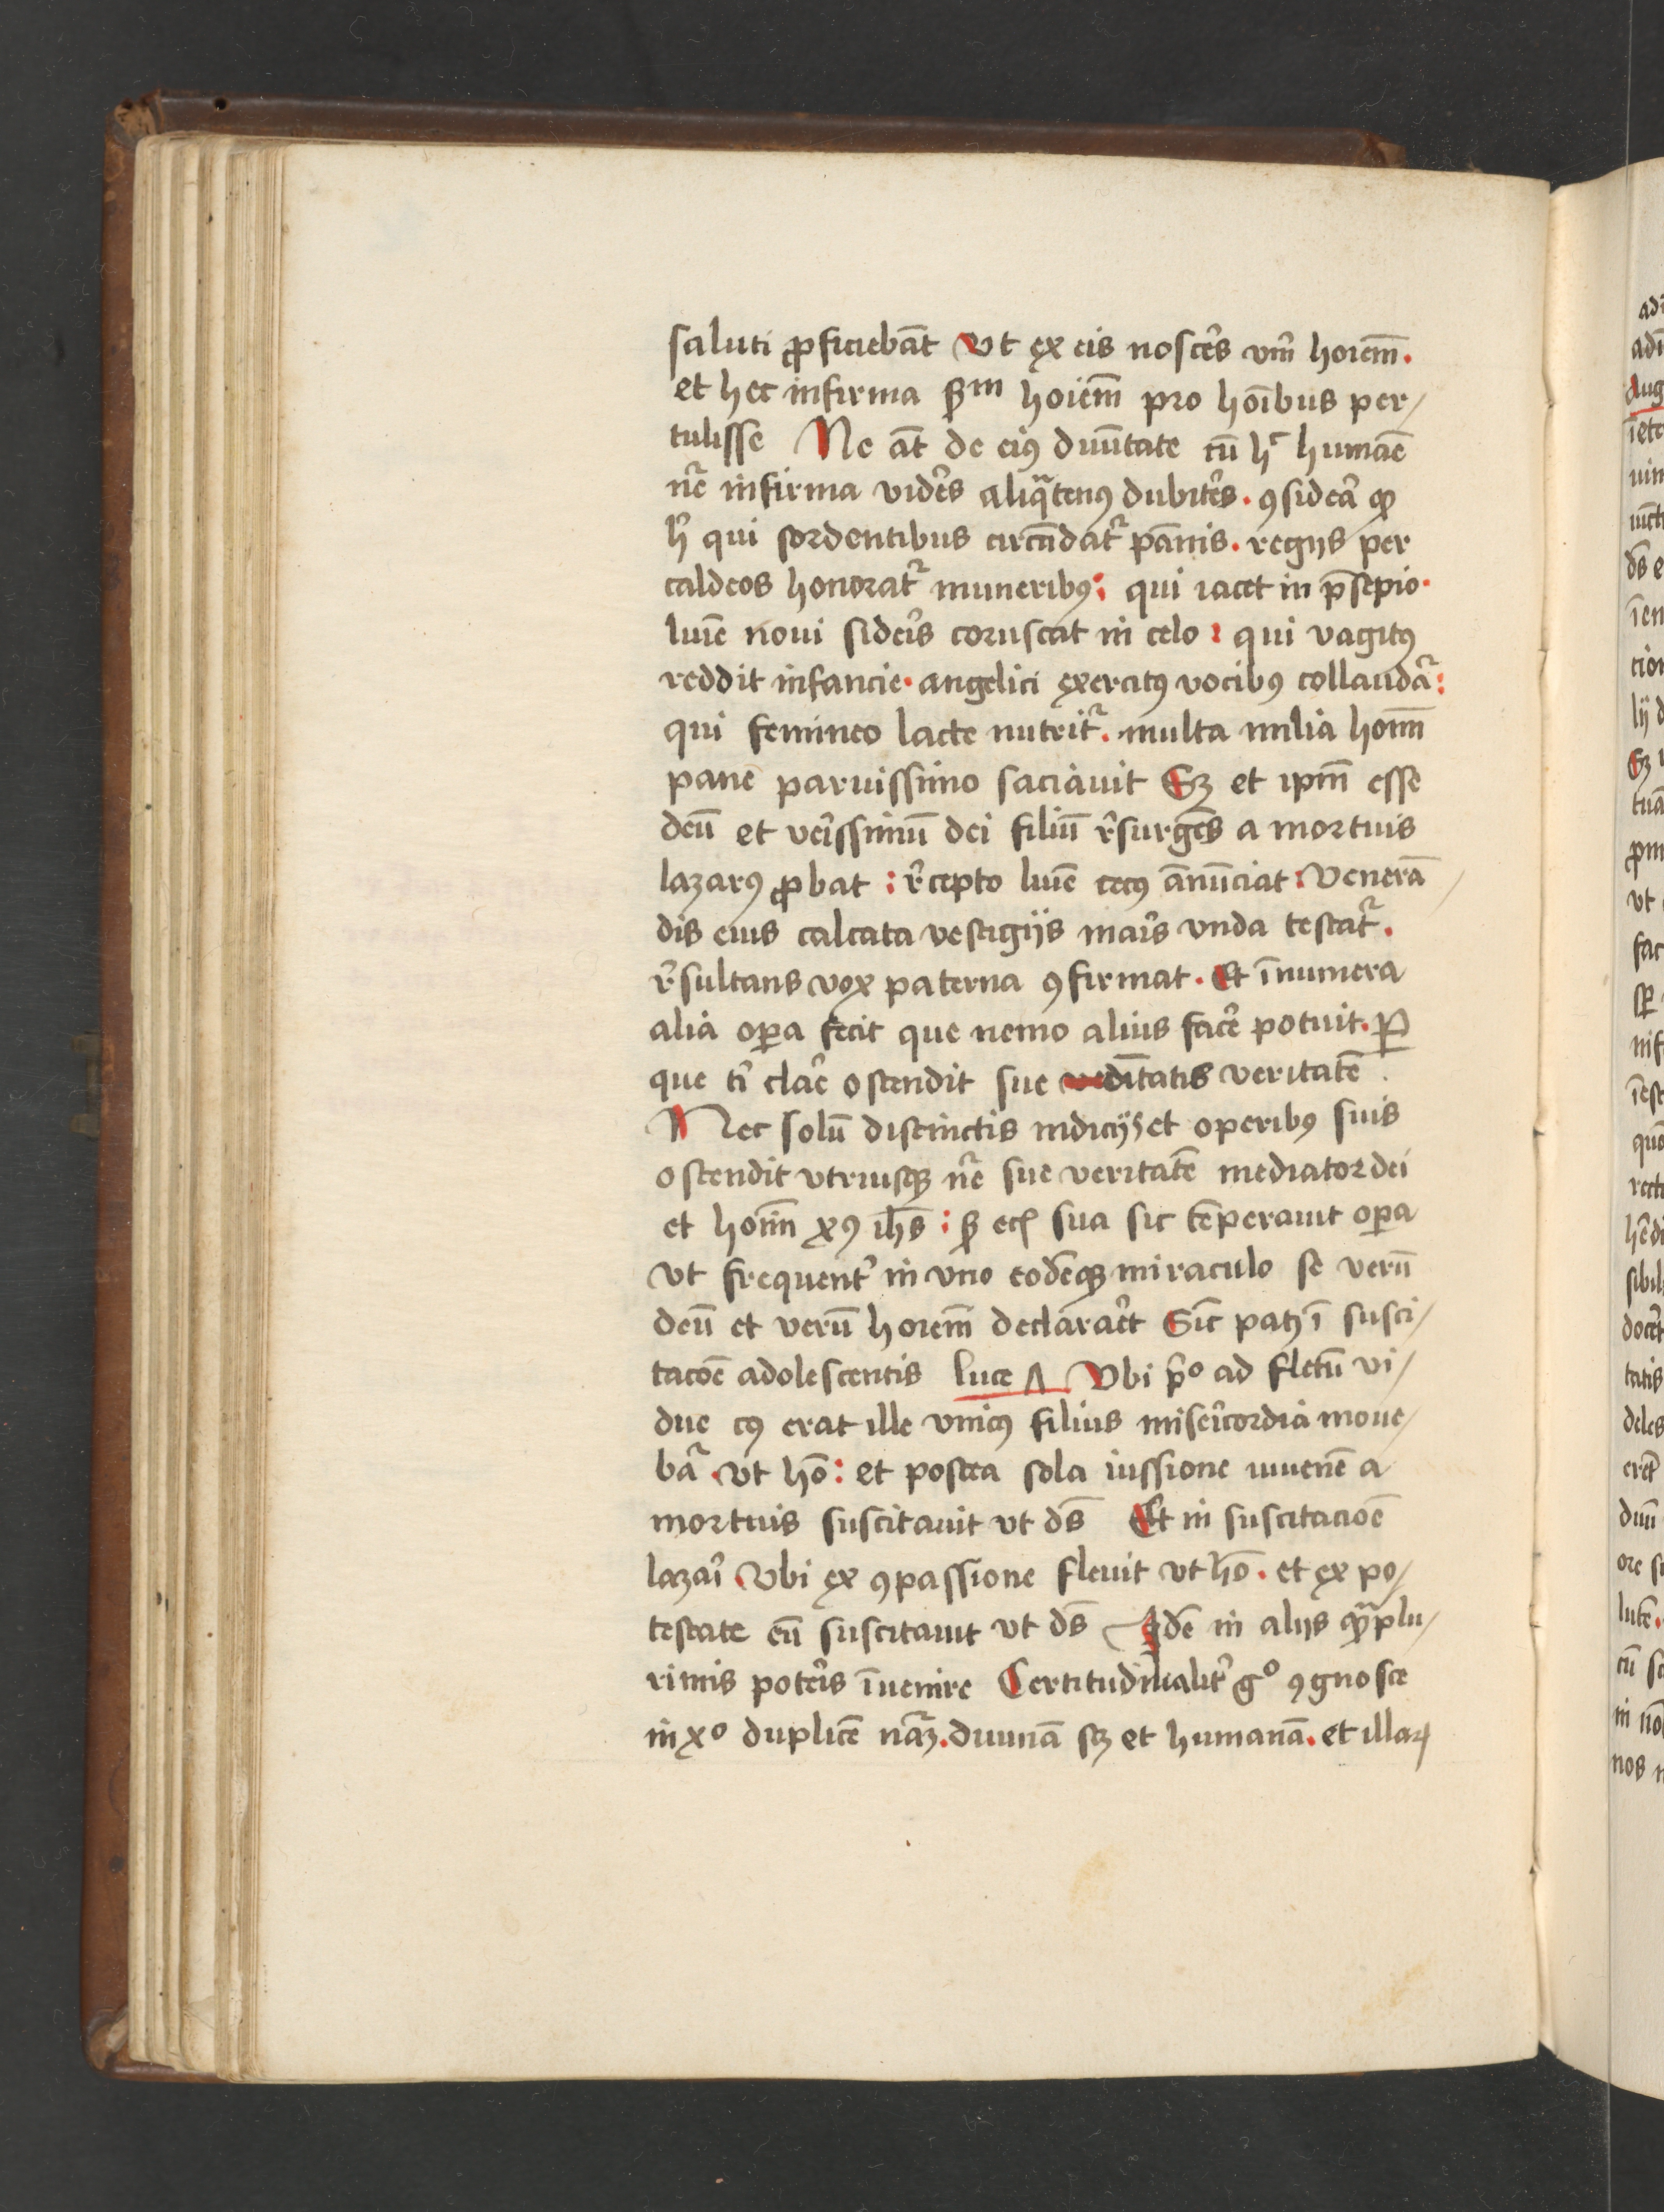 saluti ꝓficiebāt Vt ex eis nosce᷑s vm̄ hoīem̄.
et hec infirma ẜm hoīem̄ pro hoībus per/
tulisse Ne āt de eiꝰ diuītate cū hꝰ humāe
nr̄e infirma vide᷑s aliqͣtenꝰ dubite᷑s. ꝯsidea᷑ ꝙ
h᷑ qui sordentibus circūdat᷑ pānis. regijs per
caldeos honorat᷑ muneribꝰ: qui iacet in p̄sepio.
luīe noui side᷑is coruscat in celo: qui vagitꝰ
reddit infancie. angelici exercitꝰ vocibꝰ collauda᷑:
qui femineo lacte nutrit᷑. multa milia hoīm̄
pane paruissimo saciauit Sꝫ et ipm̄ esse
deū et ve᷑issimū dei filiū r᷑surgēs a mortuis
lazarꝰ ꝓbat: r᷑cepto luīe cecꝰ ānūciat: Venerā
dis eius calcata vestigijs mai᷑s vnda testat᷑.
r᷑sultans vox paterna ꝯfirmat. Et īnumera
alia oꝑa fecit que nemo alius face᷑ potuit. Ꝑ
que t᷑ clae᷑ ostendit sue dītatis veritatē.
Nec solū distinctis indicijs et operibꝰ suis
ostendit vtriusqꝫ nr̄e sue veritatē mediator dei
et hoīm̄ xꝰ ih̄s: ẜ ecꝭ sua sic tēperauit oꝑa
vt frequent᷑ in vno eodēqꝫ miraculo se verū
deū et verū hoīem̄ declarae᷑t Sic ptꝫ ī susci/
tacōe adolescentis luce Λ Vbi p᷑o ad fletū vi/
due cꝰ erat ille vnicꝰ filius mise᷑icordia moue/
ba᷑ vt hō: et postea sola iussione iuuenē a
mortuis suscitauit vt dš Et in suscitacioē
lazai᷑ Vbi ex ꝯpassione fleuit vt hō. et ex po/
testate eū suscitauit vt dš Idē in alijs qͣplu/
rimis pote᷑is īuenire Certitudinalit᷑ gͦ ꝯgnosce
in xͦ duplicē nāꝫ. diuinā sꝫ et humanā. et illaꝝ